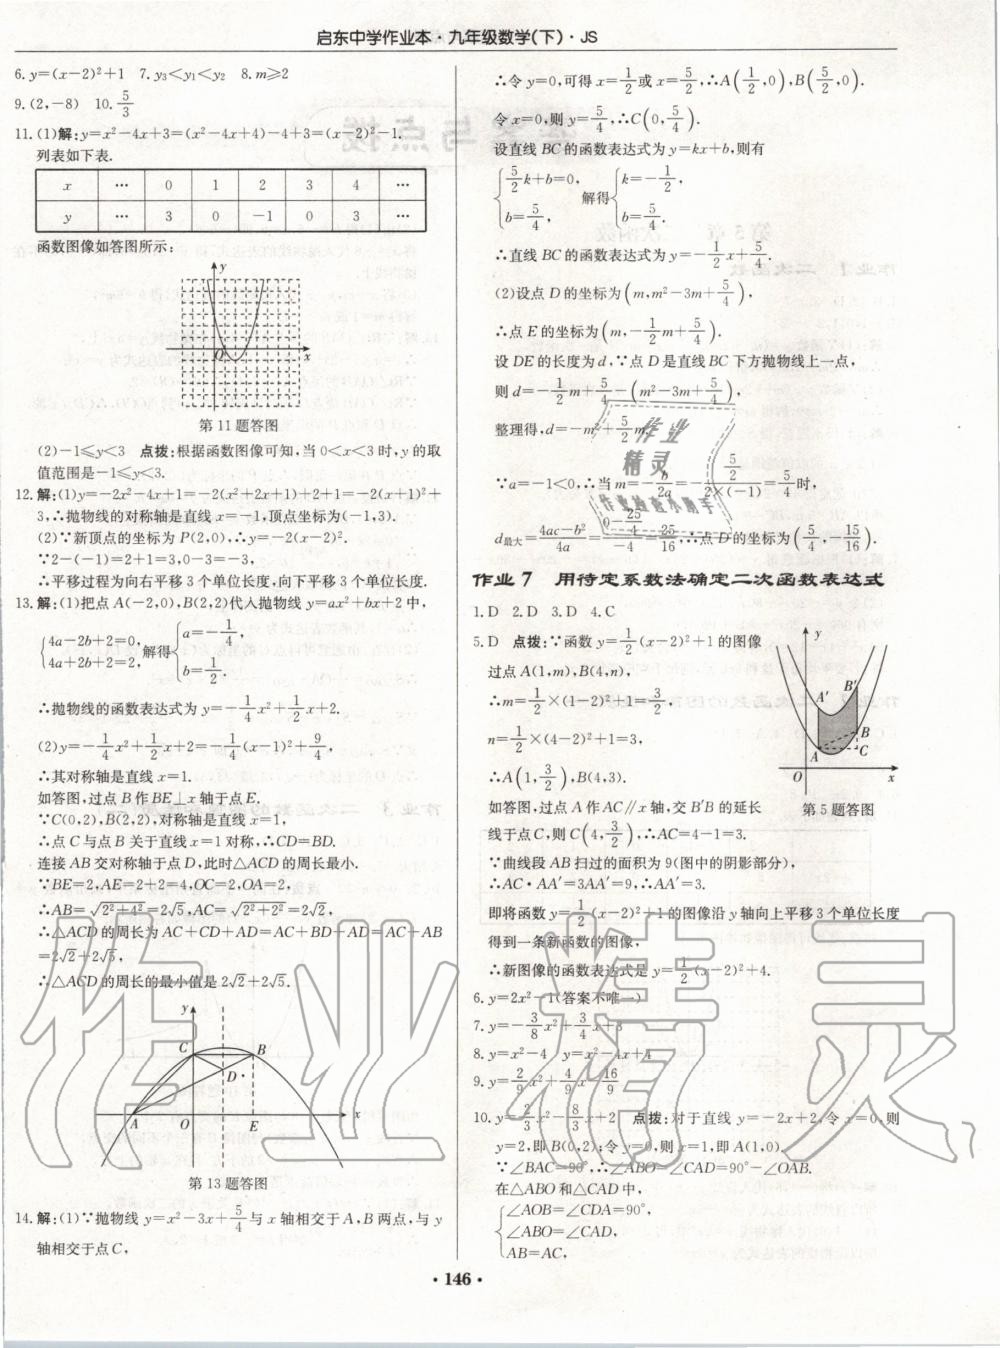 启东中学作业本·九年级数学(下)·JS
6.y=(x-2)²+1 7.y₃<y₁<y₂ 8.m≥2
9.(2,-8) 10.5/3
11.(1)解:y=x²-4x+3=(x²-4x+4)-4+3=(x-2)²-1.
列表如下表.
x … 0 1 2 3 4 …
y … 3 0 -1 0 3 …
函数图像如答图所示:
y
O x
第11题答图
(2)-1≤y<3 点拨:根据函数图像可知,当0<x<3时,y的取
值范围是-1≤y<3.
12.解:(1)y=-2x²-4x+1=-2(x²+2x+1)+2+1=-2(x+1)²+
3,∴抛物线的对称轴是直线x=-1,顶点坐标为(-1,3).
(2)∵新顶点的坐标为P(2,0),∴y=-2(x-2)².
∵2-(-1)=2+1=3,0-3=-3,
∴平移过程为向右平移3个单位长度,向下平移3个单位长度.
13.解:(1)把点A(-2,0),B(2,2)代入抛物线y=ax²+bx+2中,
{4a-2b+2=0, 4a+2b+2=2, 解得{a=-1/4, b=1/2.
∴抛物线的函数表达式为y=-1/4x²+1/2x+2.
(2)y=-1/4x²+1/2x+2=-1/4(x-1)²+9/4,
∴其对称轴是直线x=1.
如答图,过点B作BE⊥x轴于点E.
∵C(0,2),B(2,2),对称轴是直线x=1,
∴点C与点B关于直线x=1对称,∴CD=BD.
连接AB交对称轴于点D,此时△ACD的周长最小.
∵BE=2,AE=2+2=4,OC=2,OA=2,
∴AB=√(2²+4²)=2√5,AC=√(2²+2²)=2√2,
∴△ACD的周长为AC+CD+AD=AC+BD+AD=AC+AB
=2√2+2√5,
∴△ACD的周长的最小值是2√2+2√5.
y
C B
D
A O E x
第13题答图
14.解:(1)∵抛物线y=x²-3x+5/4与x轴相交于A,B两点,与y
轴相交于点C,
∴令y=0,可得x=1/2或x=5/2,∴A(1/2,0),B(5/2,0).
令x=0,则y=5/4,∴C(0,5/4).
设直线BC的函数表达式为y=kx+b,则有
{5/2k+b=0, b=5/4, 解得{k=-1/2, b=5/4.
∴直线BC的函数表达式为y=-1/2x+5/4.
(2)设点D的坐标为(m,m²-3m+5/4),
∴点E的坐标为(m,-1/2m+5/4).
设DE的长度为d,∵点D是直线BC下方抛物线上一点,
则d=-1/2m+5/4-(m²-3m+5/4),
整理得,d=-m²+5/2m,
∵a=-1<0,∴当m=-b/2a=-(5/2)/(2×(-1))=5/4时,
d最大=(4ac-b²)/4a=(0-25/4)/(-4)=25/16,∴点D的坐标为(5/4,-15/16).
作业7 用待定系数法确定二次函数表达式
1.D 2.D 3.D 4.C
5.D 点拨:∵函数y=1/2(x-2)²+1的图像
过点A(1,m),B(4,n),
∴m=1/2×(1-2)²+1=3/2,
n=1/2×(4-2)²+1=3,
∴A(1,3/2),B(4,3).
如答图,过点A作AC∥x轴,交B′B的延长
线于点C,则C(4,3/2),∴AC=4-1=3.
y
A′ B′
B
A C
O x
第5题答图
∵曲线段AB扫过的面积为9(图中的阴影部分),
∴AC·AA′=3AA′=9,∴AA′=3.
即将函数y=1/2(x-2)²+1的图像沿y轴向上平移3个单位长度
得到一条新函数的图像,
∴新图像的函数表达式是y=1/2(x-2)²+4.
6.y=2x²-1(答案不唯一)
7.y=-3/8x²+3/4x+3
8.y=x²-4 y=x²-4x+4
9.y=2/9x²+4/9x-16/9
10.y=2/3x²-8/3x+2 点拨:对于直线y=-2x+2,令x=0,则
y=2,即B(0,2);令y=0,则x=1,即A(1,0).
∵∠BAC=90°,∴∠ABO=∠CAD=90°-∠OAB.
在△ABO和△CAD中,
{∠AOB=∠CDA=90°,
∠ABO=∠CAD,
AB=AC,
·146·
作业精灵
作业检查小助手
作业精灵